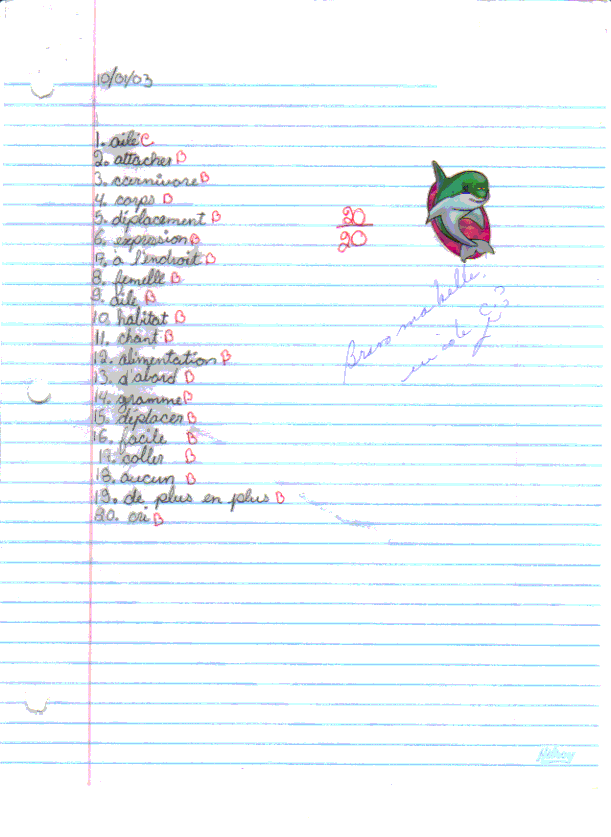 10/01/03
1. ailé C
2. attacher B
3. carnivore B
4. corps B
5. déplacement B
20
20
6. expression B
7. à l'endroit B
8. femelle B
9. aile B
10. habitat B
11. chant B
Bravo ma belle.
12. alimentation B
13. d'abord B
14. gramme B
15. déplacer B
16. facile B
17. coller B
18. aucun B
19. de plus en plus B
20. cri B